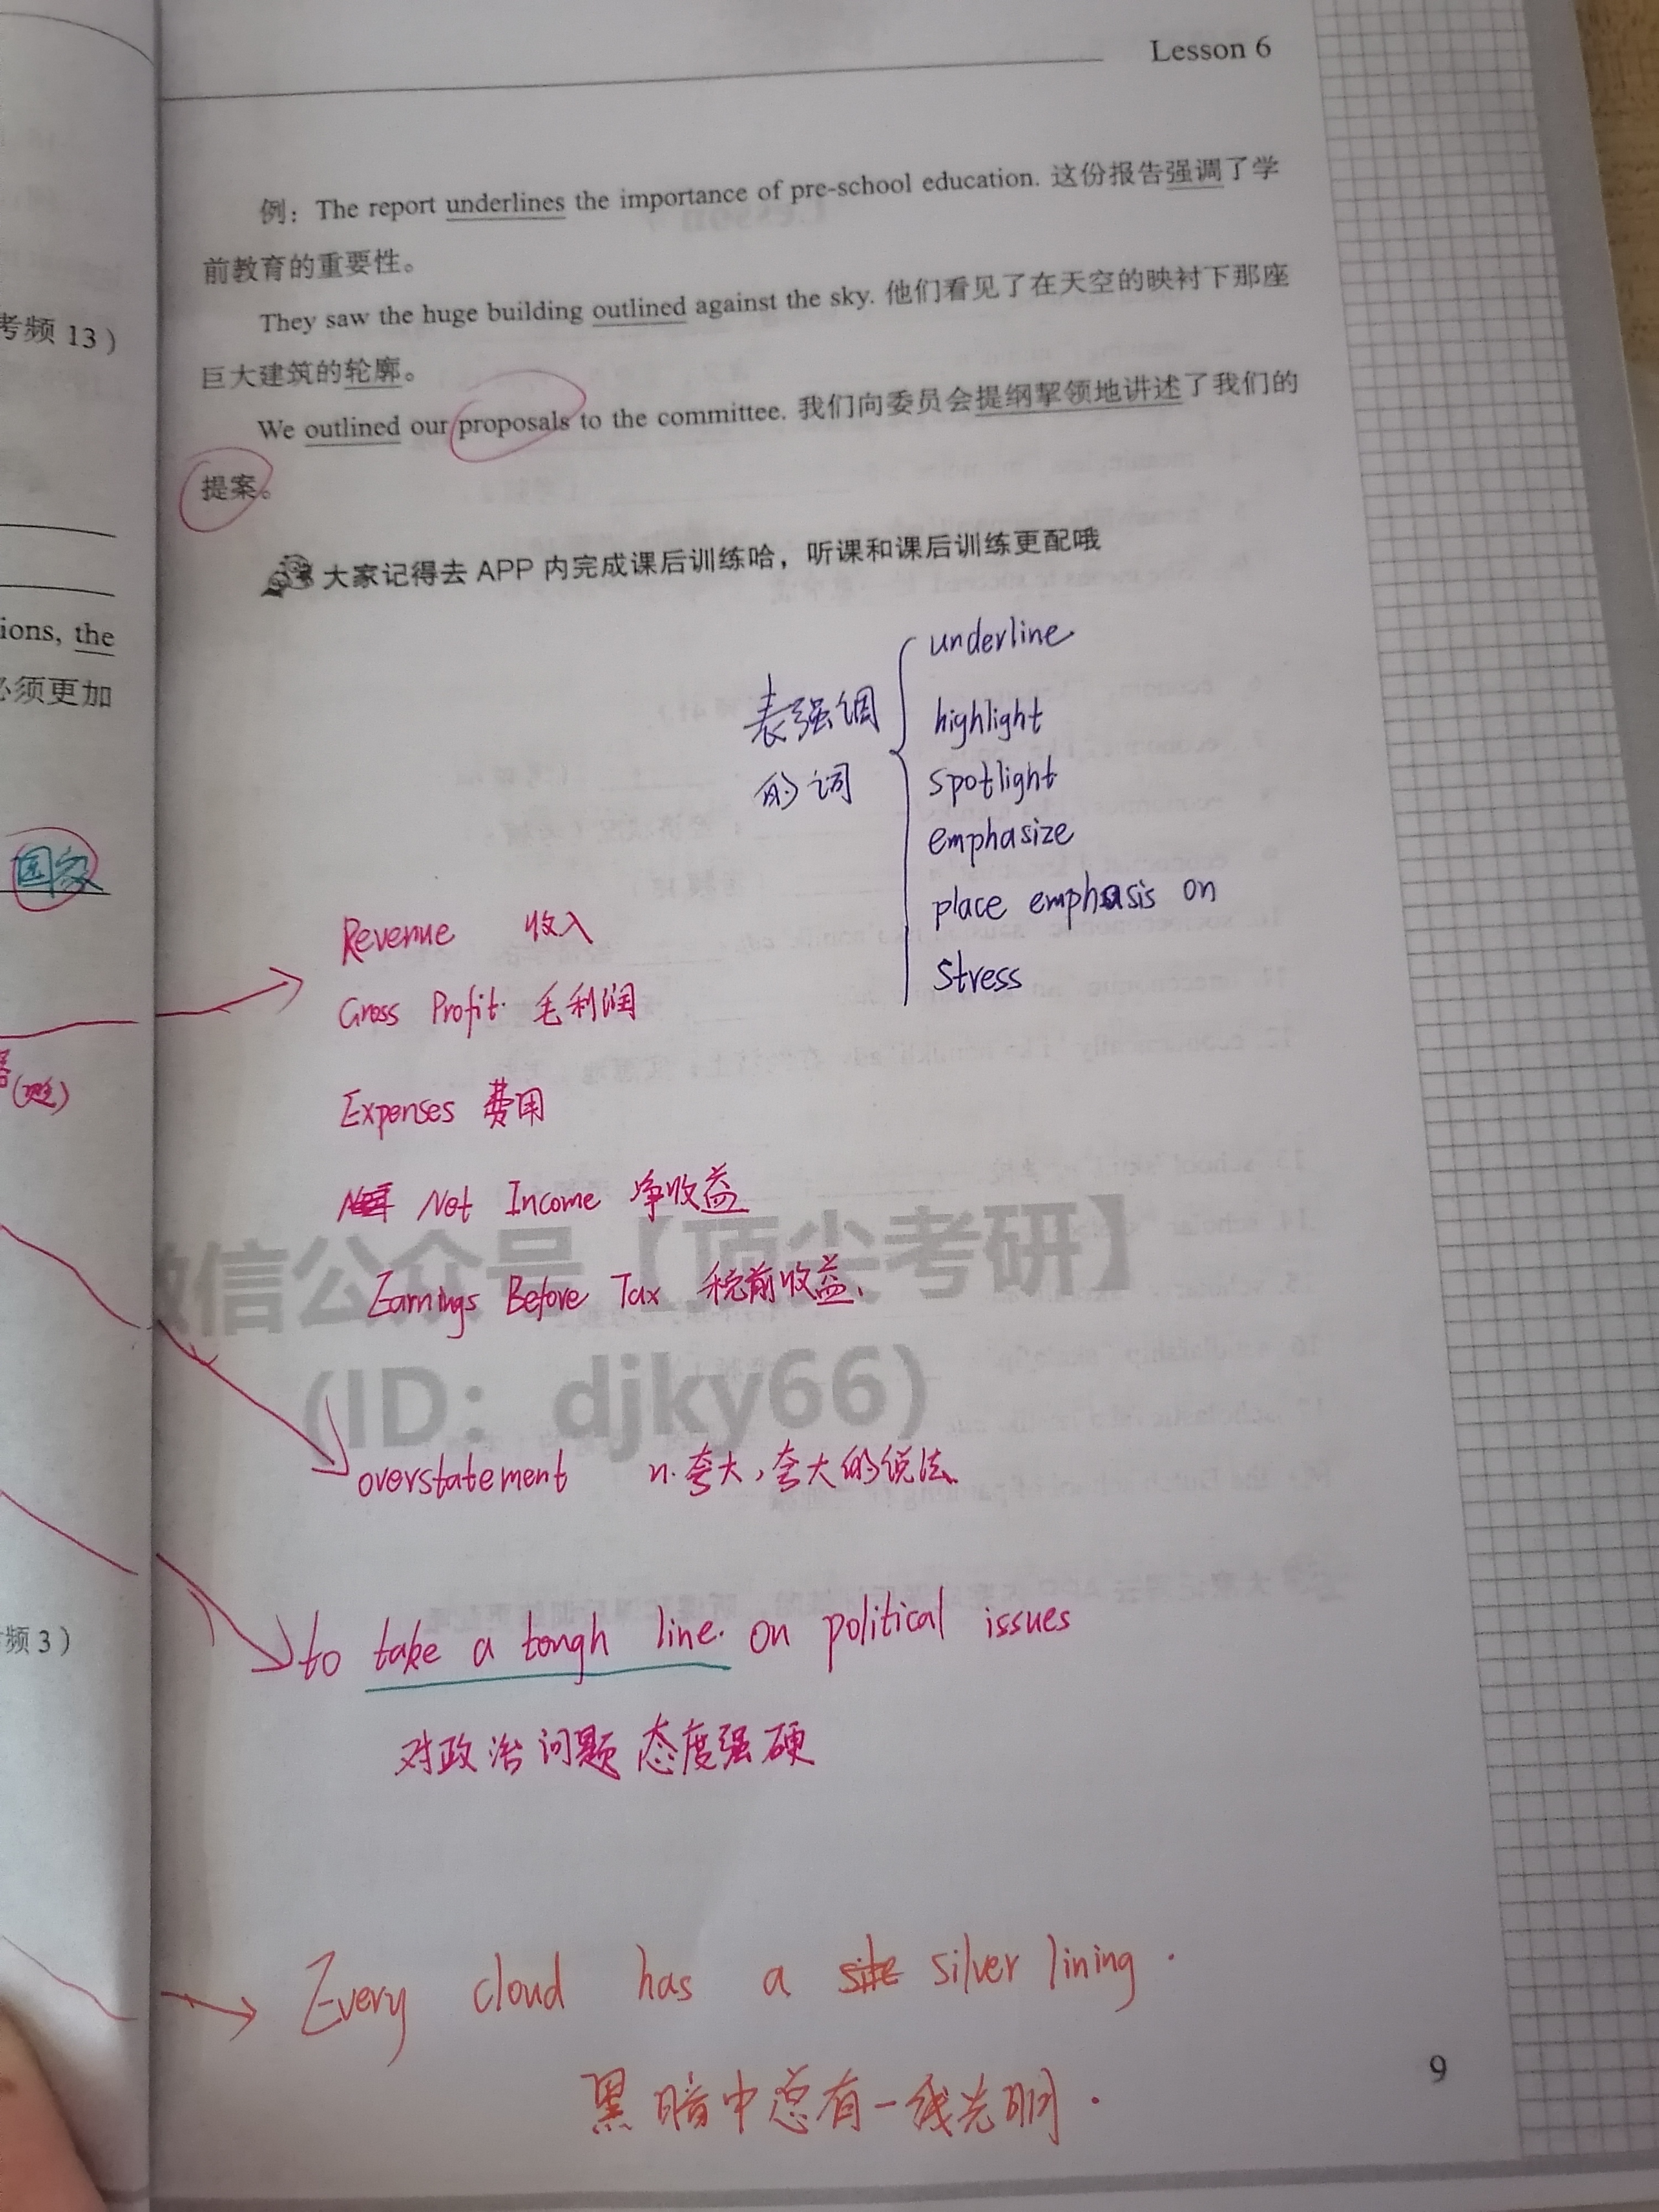 Lesson 6
例：The report underlines the importance of pre-school education. 这份报告强调了学
前教育的重要性。
They saw the huge building outlined against the sky. 他们看见了在天空的映衬下那座
巨大建筑的轮廓。
We outlined our proposals to the committee. 我们向委员会提纲挈领地讲述了我们的
提案。
大家记得去 APP 内完成课后训练哈，听课和课后训练更配哦
表强调
的词
underline
highlight
spotlight
emphasize
place emphasis on
stress
Revenue 收入
Gross Profit. 毛利润
Expenses 费用
Net Income 净收益
Earnings Before Tax 税前收益、
微信公众号【顶尖考研】
(ID：djky66)
overstatement n. 夸大，夸大的说法、
to take a tough line. on political issues
对政治问题态度强硬
Every cloud has a silver lining.
黑暗中总有一线光明.
9
考频 13）
ions, the
必须更加
国家
频 3）